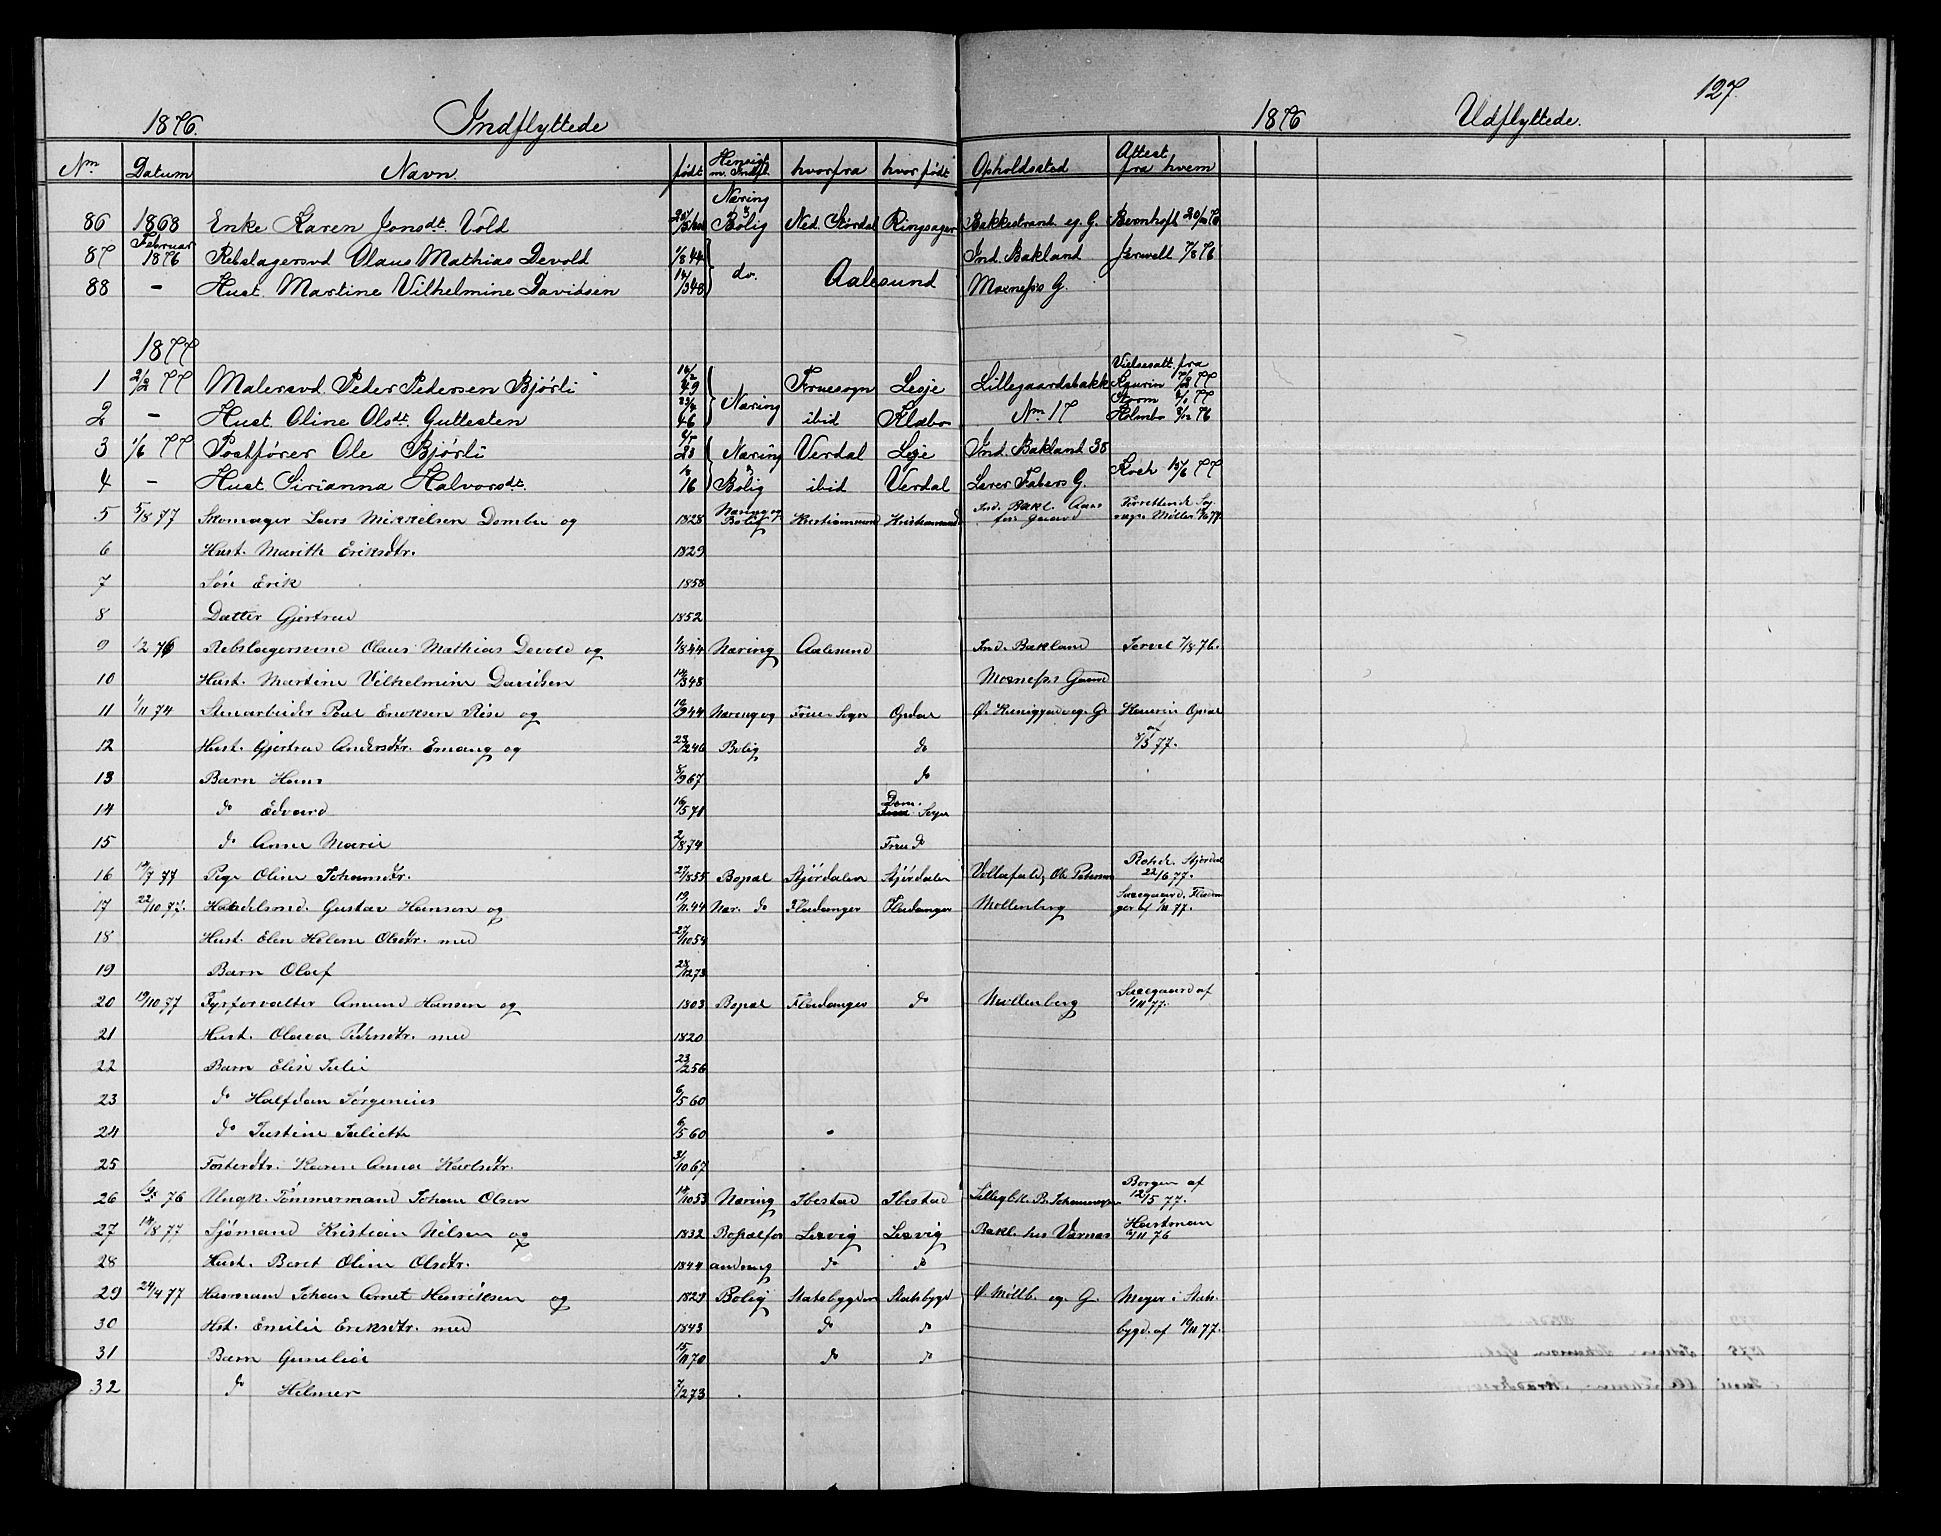 1876. Indflyttede
1876 Udflyttede. 127.
Nm Datum Navn. født Hensigt m. Indfl. hvorfra hvor født Opholdssted Attest fra hvem
86 1868 Enke Karen Jonsdt. Vold Næring & Bolig Ned. Størdal Ringsager Bakkestrand eg. G. Bernhoft
87 Februar 1876 Rebslagersvd Olaus Mathias Devold 1/8 44 do. Aalesund Ind. Bakland Jervell 7/8 76
88 - Hust. Martine Vilhelmine Davidsen 14/3 48 Moxness G.
1877
1 2/2 77 Malersvd. Peder Petersen Bjørli 49 Næring Fruesogn Lesje Lillegaardsbakke Vielsesatt. fra Kaurin
2 - Hust. Oline Olsdt. Guttesten 46 ibid Klæbo Nm 17 Storm Holmbo
3 1/6 77 Postfører Ole Bjørli 23 Næring Verdal Lesje Ind. Bakland 38
4 - Hust. Sirianna Halvorsdt. 16 & Bolig ibid Verdal Lærer Fabers G. Koch 13/6 77
5 5/8 77 Skomager Lars Mikkelsen Dombu og 1828 Næring og Bolig Kristiansund Kristiansund Ind. Bakl. Gaard
6 Hust. Marith Eriksdtr. 1829
7 Søn Erik 1858
8 Datter Gjertrud 1852
9 1/2 76 Rebslagersvend Olaus Mathias Devold og 1/8 44 Næring Aalesund Ind. Bakland Jervel 7/8 76.
10 Hust. Martine Vilhelmine Davidsen 14/3 48 Moxness Gaard
11 1/11 74 Stenarbeider Poul Eriksen Rise og 44 Næring og Frue-Sogn Opdal
12 Hust. Gjertrud Andersdtr. Emaug og 23/2 46 Bolig do 77.
13 Barn Hans 8/9 67 do
14 do Edvard 16/5 71 Dom. Sogn
15 do Anne Marie 2/8 74 Frue do
16 14/7 77 Pige Oline Johansdtr. 27/8 55 Bopæl Stjørdalen Stjørdalen Ole Petersen Stjørdal 22/6 77.
17 22/10 77. Handelsmd. Gustav Hansen og 19/11 44 Nær. do Flødanger Flødanger Møllenberg
18 Hust. Elen Helene Olsdtr. med 27/10 54
19 Barn Olaf 28/12 73
20 19/10 77 Fyrforvalter Amund Hansen og 1803 Bopæl Flødanger do Møllenberg
21 Hust. Olava Pedersdtr. med 1820
22 Barn Elise Julie 23/2 56
23 do Halfdan Jørgenius 6/5 60
24 do Justine Juliette 6/5 60
25 Fosterdtr. Karen Anna Karlsdtr. 31/10 67
26 76 Ungk. Tømmermand Johan Olsen 14/10 53 Næring Ibestad Ibestad Borgen af 12/5 77.
27 14/8 77 Sjømand Kristian Nilsen og 1832 Bopælfor Lexvig Lexvig Bakl. hus Værnæs Hartman 76
28 Hust. Beret Oline Olsdtr. 1844 andring do do
29 24/4 77 Huusmand Johan Arnet Henriksen og 1829 Bolig Statsbygden Statsbygd Ø. Møllb. eg. G. Meyer i Stats-
30 Hst. Emilie Eriksdtr. med 1843 do do bygd. af 77.
31 Barn Gunelie 15/11 70 do do
32 do Helmer 7/2 73